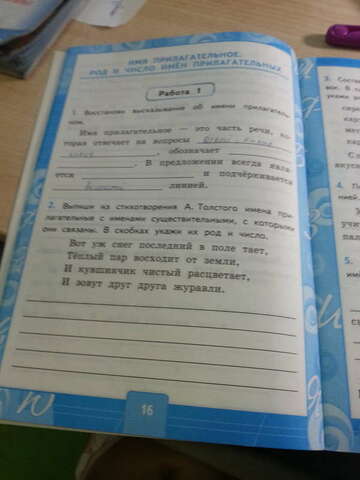 ИМЯ ПРИЛАГАТЕЛЬНОЕ.
РОД И ЧИСЛО ИМЁН ПРИЛАГАТЕЛЬНЫХ
Работа 1
1. Восстанови высказывания об имени прилагатель-
ном.
Имя прилагательное — это часть речи, ко-
торая отвечает на вопросы
обозначает
. В предложении всегда явля-
ется и подчёркивается
линией.
2. Выпиши из стихотворения А. Толстого имена при-
лагательные с именами существительными, с которыми
они связаны. В скобках укажи их род и число.
Вот уж снег последний в поле тает,
Тёплый пар восходит от земли,
И кувшинчик чистый расцветает,
И зовут друг друга журавли.
16